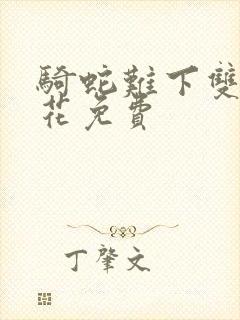 騎蛇難下雙
花免費
丁肇文